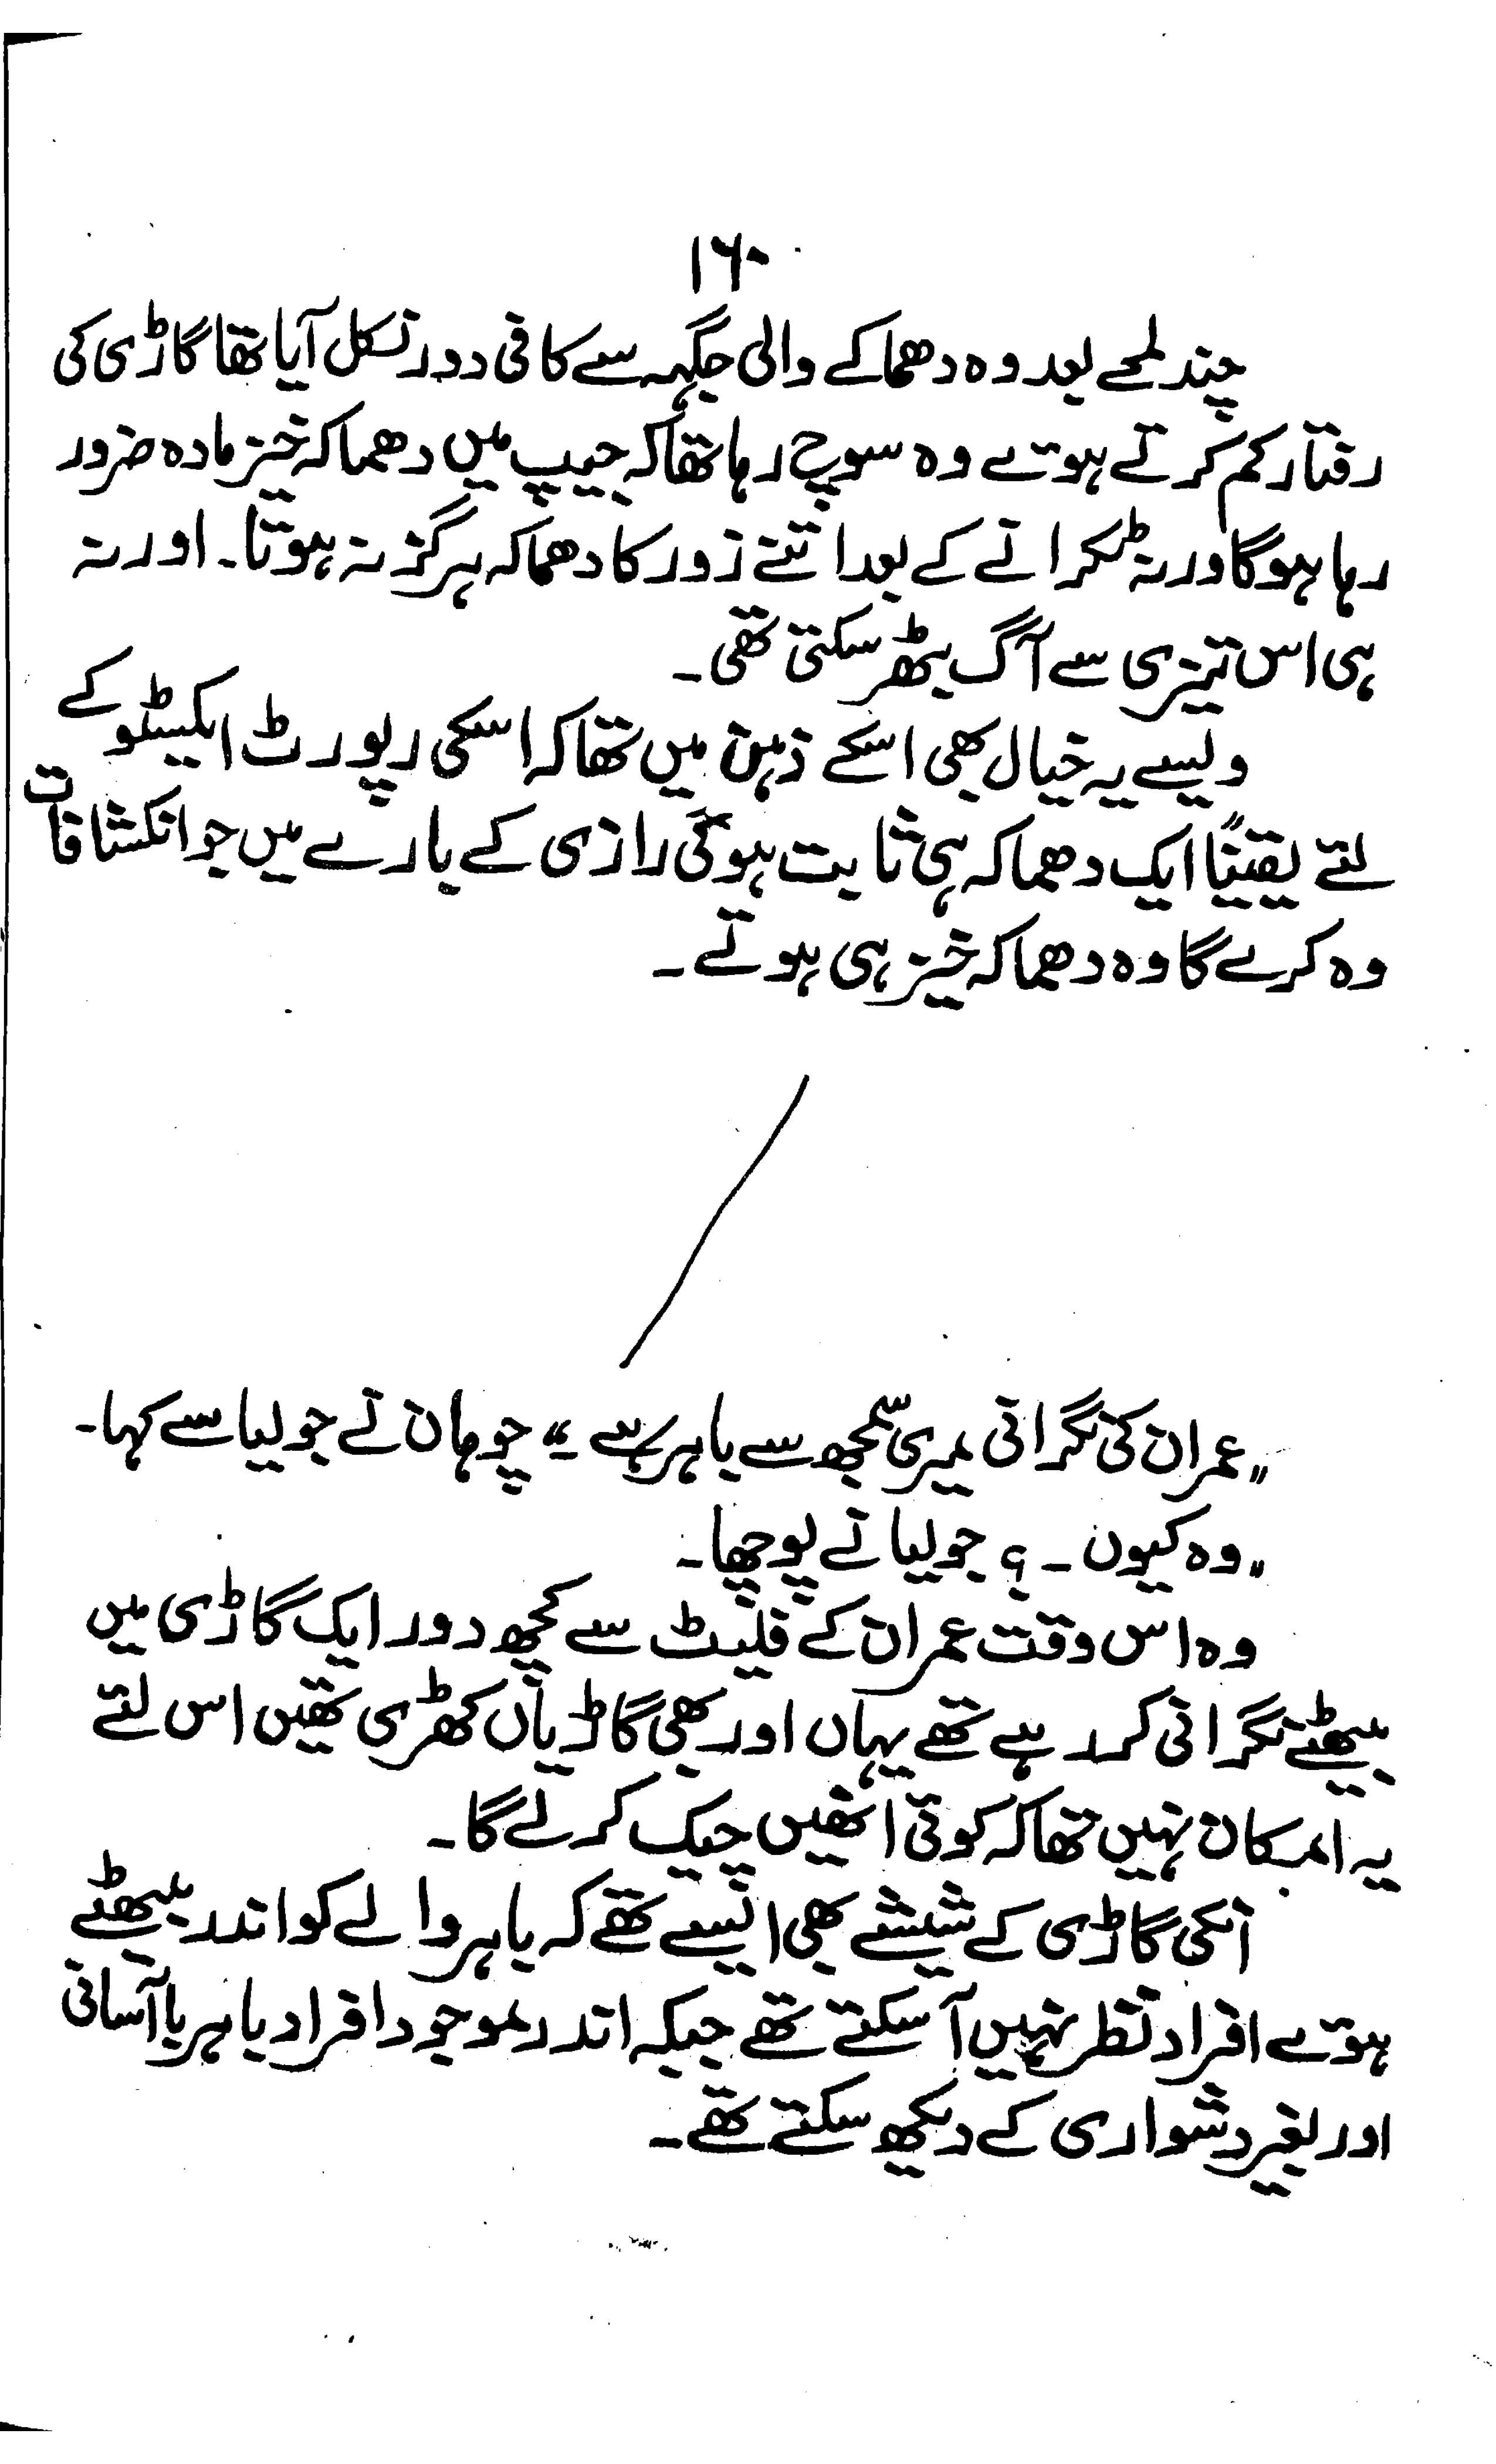 ۱۶۰
چند لمحے بعد وہ دھماکے والی جگہہ سے کافی دور نکل آیا تھا گاڑی کی
رفتار کم کرتے ہوئے وہ سوچ رہا تھا کہ جیپ میں دھماکہ خیز مادہ ضرور
رہا ہوگا ورنہ ٹکرانے کے بعد اتنے زور کا دھماکہ ہرگز نہ ہوتا۔ اور نہ
ہی اس تیزی سے آگ بڑھ سکتی تھی۔
ویسے یہ خیال بھی اسکے ذہن میں تھا کہ اسکی رپورٹ ایکسٹو کے
لئے یقیناً ایک دھماکہ ہی ثابت ہوگی رازی کے بارے میں جو انکشافات
وہ کرے گا وہ دھماکہ خیز ہی ہوتے۔
"عمران کی نگرانی میری سمجھ سے باہر ہے۔" چوہان نے جولیا سے کہا۔
"وہ کیوں۔؟ جولیا نے پوچھا۔
وہ اس وقت عمران کے فلیٹ سے کچھ دور ایک گاڑی میں
بیٹھے نگرانی کر رہے تھے یہاں اور بھی گاڑیاں کھڑی تھیں اس لئے
یہ امکان نہیں تھا کہ کوئی انھیں چیک کر لے گا۔
انکی گاڑی کے شیشے بھی ایسے تھے کہ باہر والے کو اندر بیٹھے
ہوئے افراد نظر نہیں آ سکتے تھے جبکہ اندر موجود افراد باہر باآسانی
اور بغیر دشواری کے دیکھ سکتے تھے۔